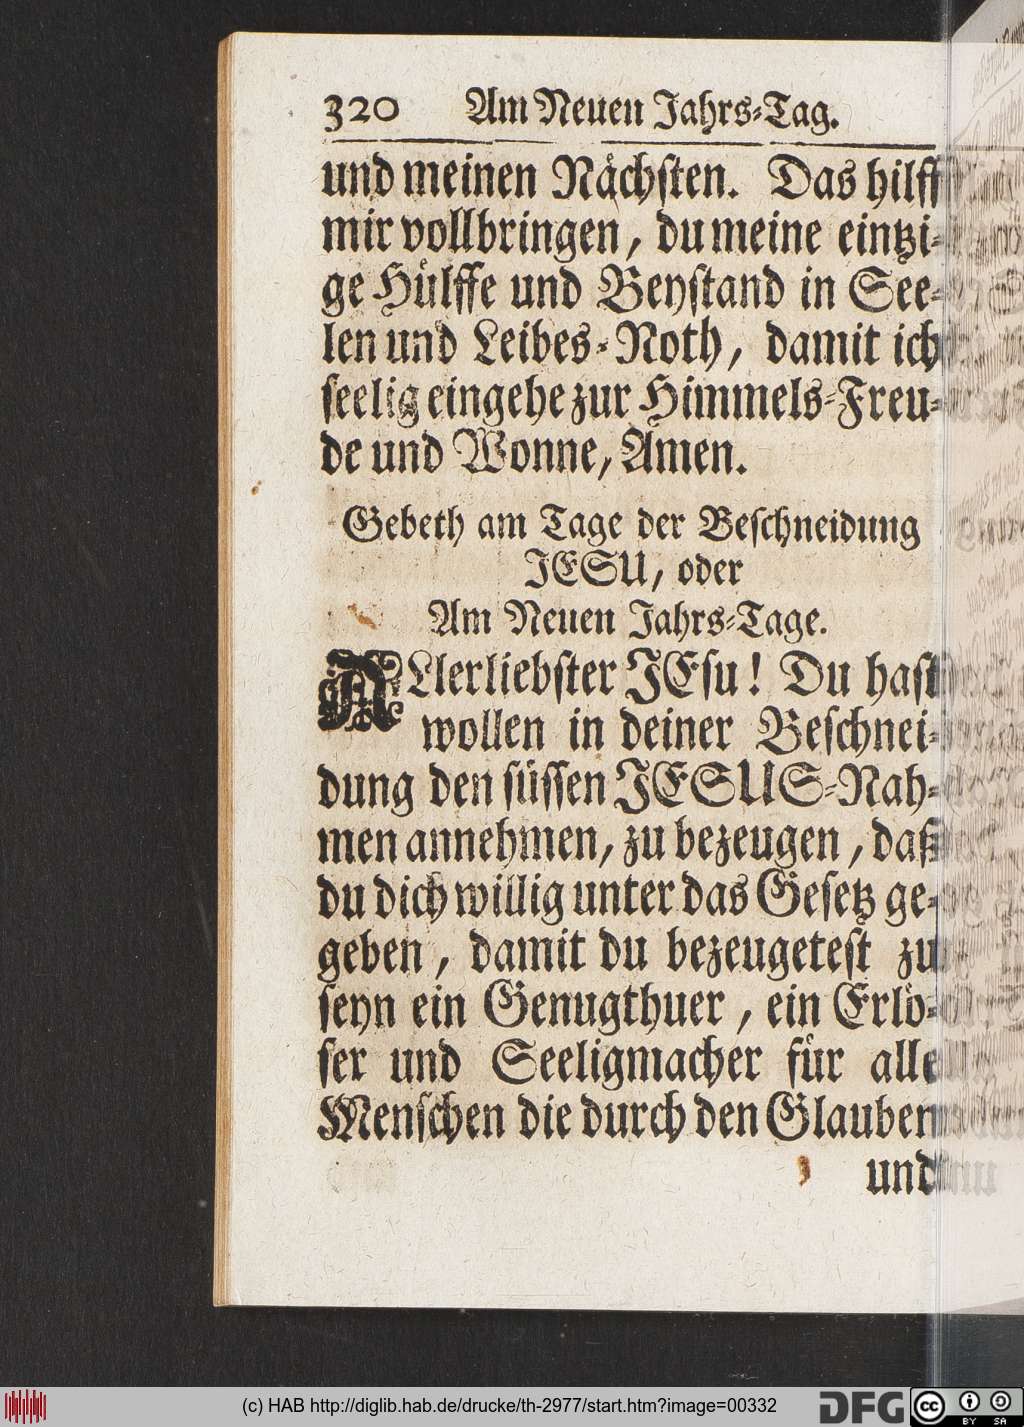 320 Am Neuen Jahrs-Tag.
und meinen Nächsten. Das hilff
mir vollbringen, du meine eintzi-
ge Hülffe und Beystand in See-
len und Leibes-Noth, damit ich
seelig eingehe zur Himmels-Freu-
de und Wonne, Amen.
Gebeth am Tage der Beschneidung
JESU, oder
Am Neuen Jahrs-Tage.
ALlerliebster JEsu! Du hast
wollen in deiner Beschnei-
dung den süssen JESUS-Nah-
men annehmen, zu bezeugen, daß
du dich willig unter das Gesetz ge-
geben, damit du bezeugetest zu
seyn ein Genugthuer, ein Erlö-
ser und Seeligmacher für alle
Menschen die durch den Glauben
und
(c) HAB http://diglib.hab.de/drucke/th-2977/start.htm?image=00332
DFG
cc BY SA